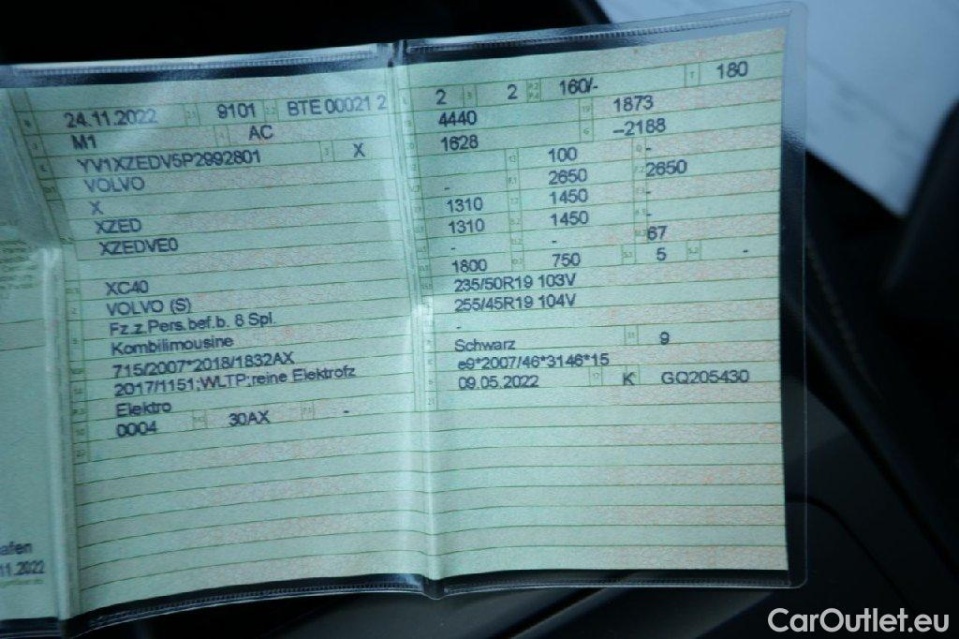 24.11.2022 9101 BTE 00021 2
M1 AC
YV1XZEDV5P2992801 X
VOLVO
X
XZED
XZEDVE0
XC40
VOLVO (S)
Fz.z.Pers.bef.b. 8 Spl.
Kombilimousine
715/2007*2018/1832AX
2017/1151;WLTP;reine Elektrofz
Elektro
0004 30AX -
2 2 160/- 180
4440 1873
1628 –2188
100 -
- 2650 2650
1310 1450 -
1310 1450 -
- - 67
1800 750 5 -
235/50R19 103V
255/45R19 104V
-
Schwarz 9
e9*2007/46*3146*15
09.05.2022 K GQ205430
afen
11.2022
CarOutlet.eu